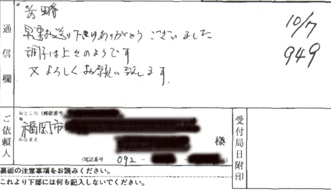 前略
10/7
早速お送り下さりありがとうございました
949
調子は上々のようです
又よろしくお願い致します。
通信欄
おところ(郵便番号
福岡市
おなまえ
様
ご依頼人
(電話番号 092-
受付局日附印
裏面の注意事項をお読みください。
これより下部には何も記入しないでください。